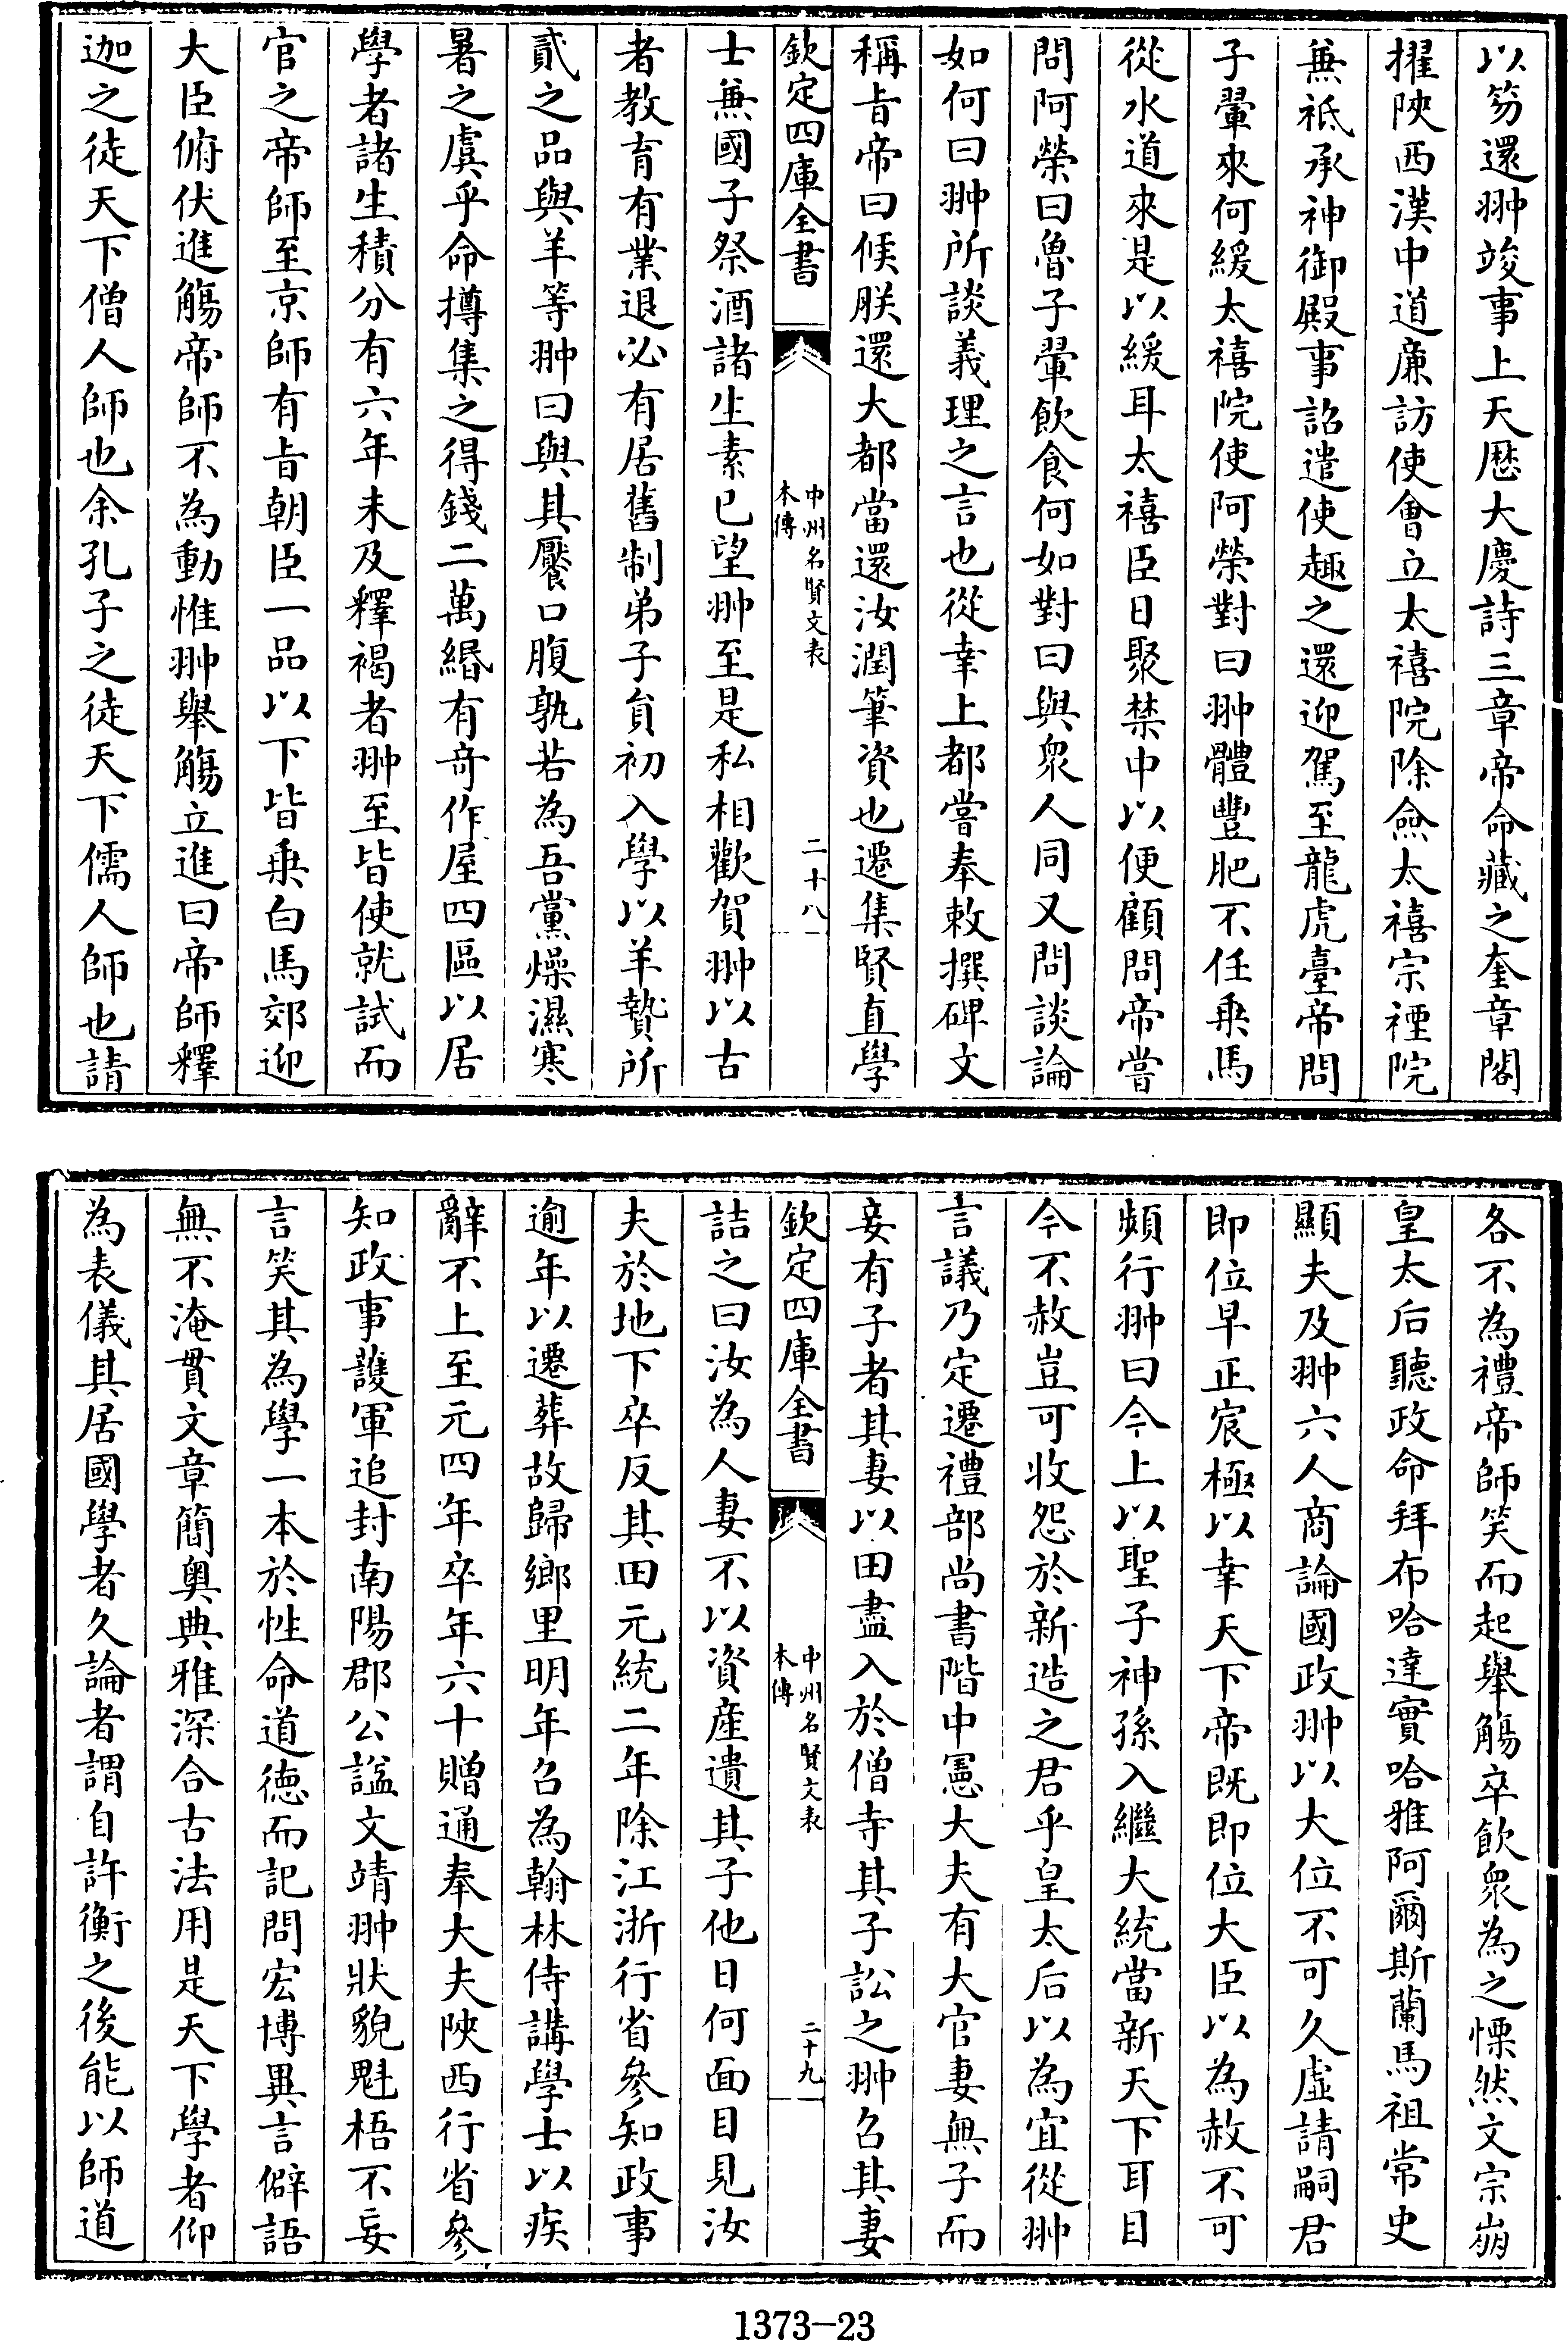 以笏還翀竣事上天厯大慶詩三章帝命藏之奎章閣
擢陜西漢中道廉訪使會立太禧院除僉太禧宗禋院
兼祗承神御殿事詔遣使趣之還迎駕至龍虎臺帝問
子翬來何緩太禧院使阿榮對曰翀體豐肥不任乗馬
從水道來是以緩耳太禧臣日聚禁中以便顧問帝嘗
問阿榮曰魯子翬飲食何如對曰與衆人同又問談論
如何曰翀所談義理之言也從幸上都嘗奉敕撰碑文
稱旨帝曰候朕還大都當還汝潤筆資也遷集賢直學
欽定四庫全書
中州名賢文表
本傳
二十八
士兼國子祭酒諸生素已望翀至是私相歡賀翀以古
者教育有業退必有居舊制弟子負初入學以羊贄所
貳之品與羊等翀曰與其饜口腹孰若為吾黨燥濕寒
暑之虞乎命撙集之得錢二萬緡有竒作屋四區以居
學者諸生積分有六年未及釋褐者翀至皆使就試而
官之帝師至京師有旨朝臣一品以下皆乗白馬郊迎
大臣俯伏進觴帝師不為動惟翀舉觴立進曰帝師釋
迦之徒天下僧人師也余孔子之徒天下儒人師也請
各不為禮帝師笑而起舉觴卒飲衆為之慄然文宗崩
皇太后聽政命拜布哈達實哈雅阿爾斯蘭馬祖常史
顯夫及翀六人商論國政翀以大位不可久虛請嗣君
即位早正宸極以幸天下帝既即位大臣以為赦不可
頻行翀曰今上以聖子神孫入繼大統當新天下耳目
今不赦豈可收怨於新造之君乎皇太后以為宜從翀
言議乃定遷禮部尚書階中憲大夫有大官妻無子而
妾有子者其妻以田盡入於僧寺其子訟之翀召其妻
欽定四庫全書
中州名賢文表
本傳
二十九
詰之曰汝為人妻不以資産遺其子他日何面目見汝
夫於地下卒反其田元統二年除江浙行省參知政事
逾年以遷葬故歸鄉里明年召為翰林侍講學士以疾
辭不上至元四年卒年六十贈通奉大夫陜西行省參
知政事護軍追封南陽郡公諡文靖翀狀貌魁梧不妄
言笑其為學一本於性命道德而記問宏博異言僻語
無不淹貫文章簡奧典雅深合古法用是天下學者仰
為表儀其居國學者久論者謂自許衡之後能以師道
1373-23